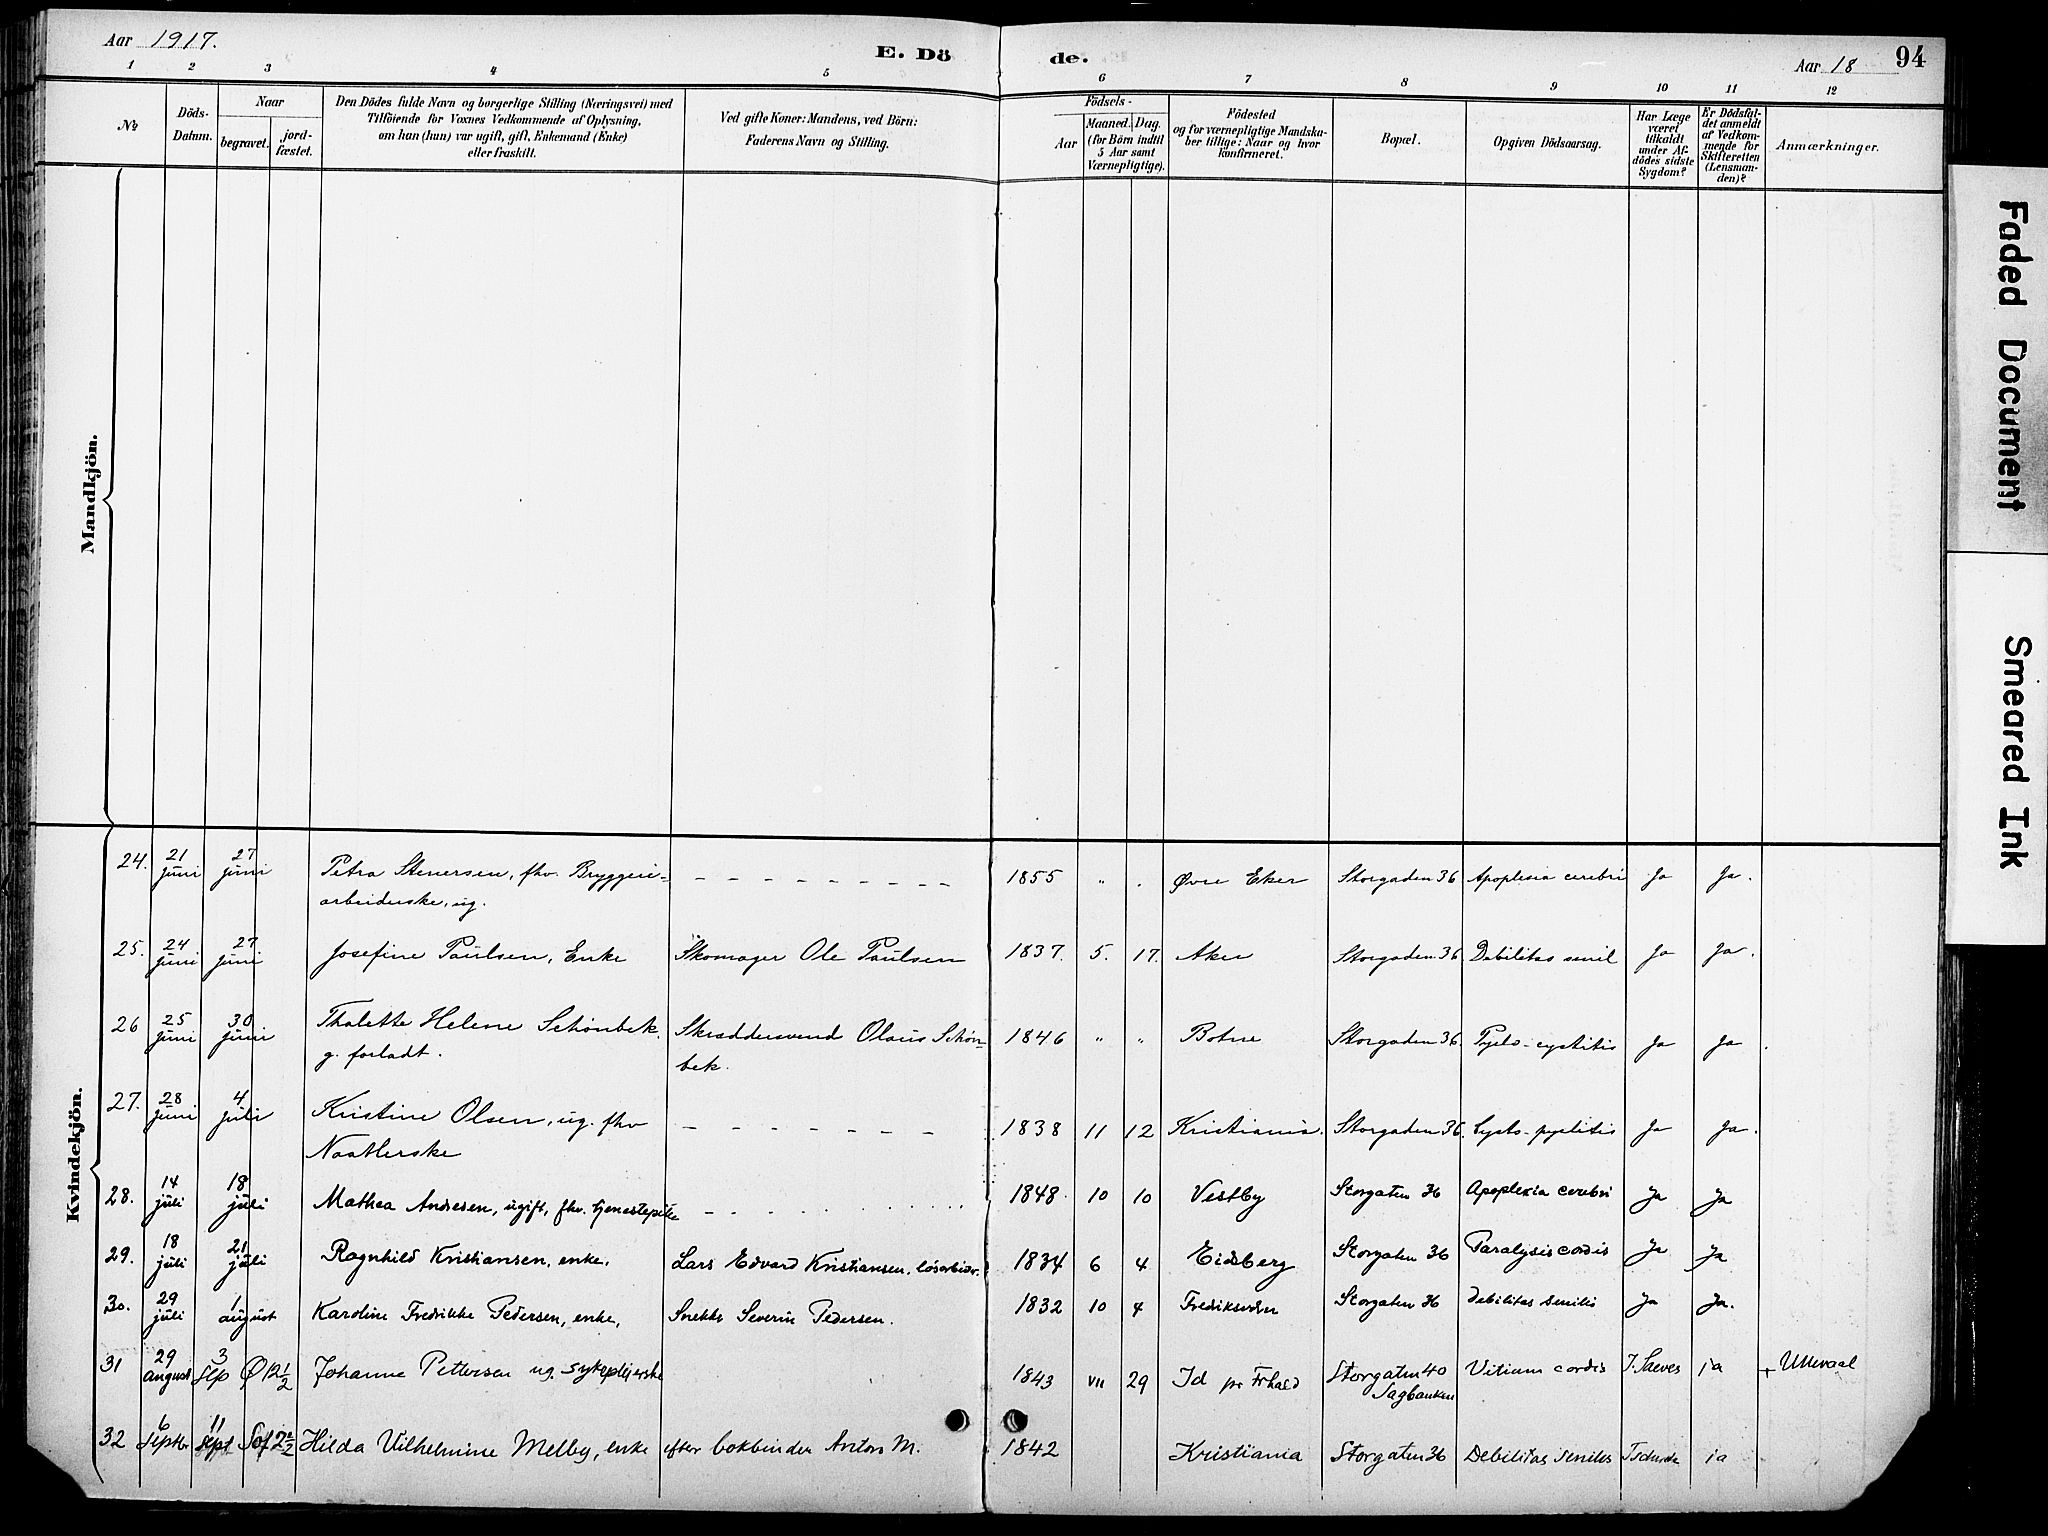 Aar 1917.
E. Dö de.
Aar 18
94
1 2 3 4 5 6 7 8 9 10 11 12
No
Döds-Datum.
Naar
begravet.
jord-fæstet.
Den Dödes fulde Navn og borgerlige Stilling (Næringsvei) med
Tilföiende for Voxnes Vedkommende af Oplysning,
om han (hun) var ugift, gift, Enkemand (Enke)
eller fraskilt.
Ved gifte Koner: Mandens, ved Börn:
Faderens Navn og Stilling.
Födsels-
Aar
Maaned. Dag.
(for Börn indtil
5 Aar samt
Værnepligtige).
Födested
og for værnepligtige Mandska-
ber tillige: Naar og hvor
konfirmeret.
Bopæl.
Opgiven Dödsaarsag.
Har Læge
været
tilkaldt
under Af-
dödes sidste
Sygdom?
Er Dödsfal-
det anmeldt
af Vedkom-
mende for
Skifteretten
(Lensman-
den)?
Anmærkninger.
Mandkjön.
Kvindekjön.
24. 21 juni 27 juni Petra Stenersen, fhv. Bryggeri- 1855 " . Øvre Eker Storgaden 36 Apoplexia cerebri Ja Ja.
arbeiderske, ug.
25. 24 juni 27 juni Josefine Paulsen, Enke Skomager Ole Paulsen 1837. 5. 17. Aker Storgaden 36 Debilitas senil Ja Ja.
26 25 juni 30 juni Thalette Helene Schönbek. Skræddersvend Olaus Schön- 1846 " " Botne Storgaden 36. Pyelo-cystitis Ja Ja.
g. forladt. bek.
27. 28 juni 4 juli Kristine Olsen, ug. fhv 1838 11 12 Kristiania. Storgaden 36. Cysto-pyelitis Ja Ja.
Naatlerske
28. 14 juli 18 juli Mathea Andresen, ugift, fhv. tjenestepike 1848. 10 10 Vestby Storgaten 36 Apoplexia cerebri Ja Ja
29. 18 juli 21 juli Ragnhild Kristiansen, enke. Lars Edvard Kristiansen, løsarbeider. 1834 6 4 Eidsberg Storgaten 36 Paralysis cordis Ja Ja
30. 29 juli 1 august Karoline Fredrikke Pedersen, enke, Snekker Severin Pedersen. 1832 10 4 Storgaten 36 debilitas senilis Ja Ja.
31 29 august 3 Sep Ø 12 1/2 Johanne Pettersen ug. sykepleierske 1843 VII 29 Id pr Frhald Storgaten 40 Vitium cordis ia + Ullevaal
Sagbanken
32 6 Septbr 11 Sept Hilda Vilhelmine Melby, enke efter bokbinder Anton M. 1842 Kristiania Storgaten 36 Debilitas senilis ia
Faded Document
Smeared Ink